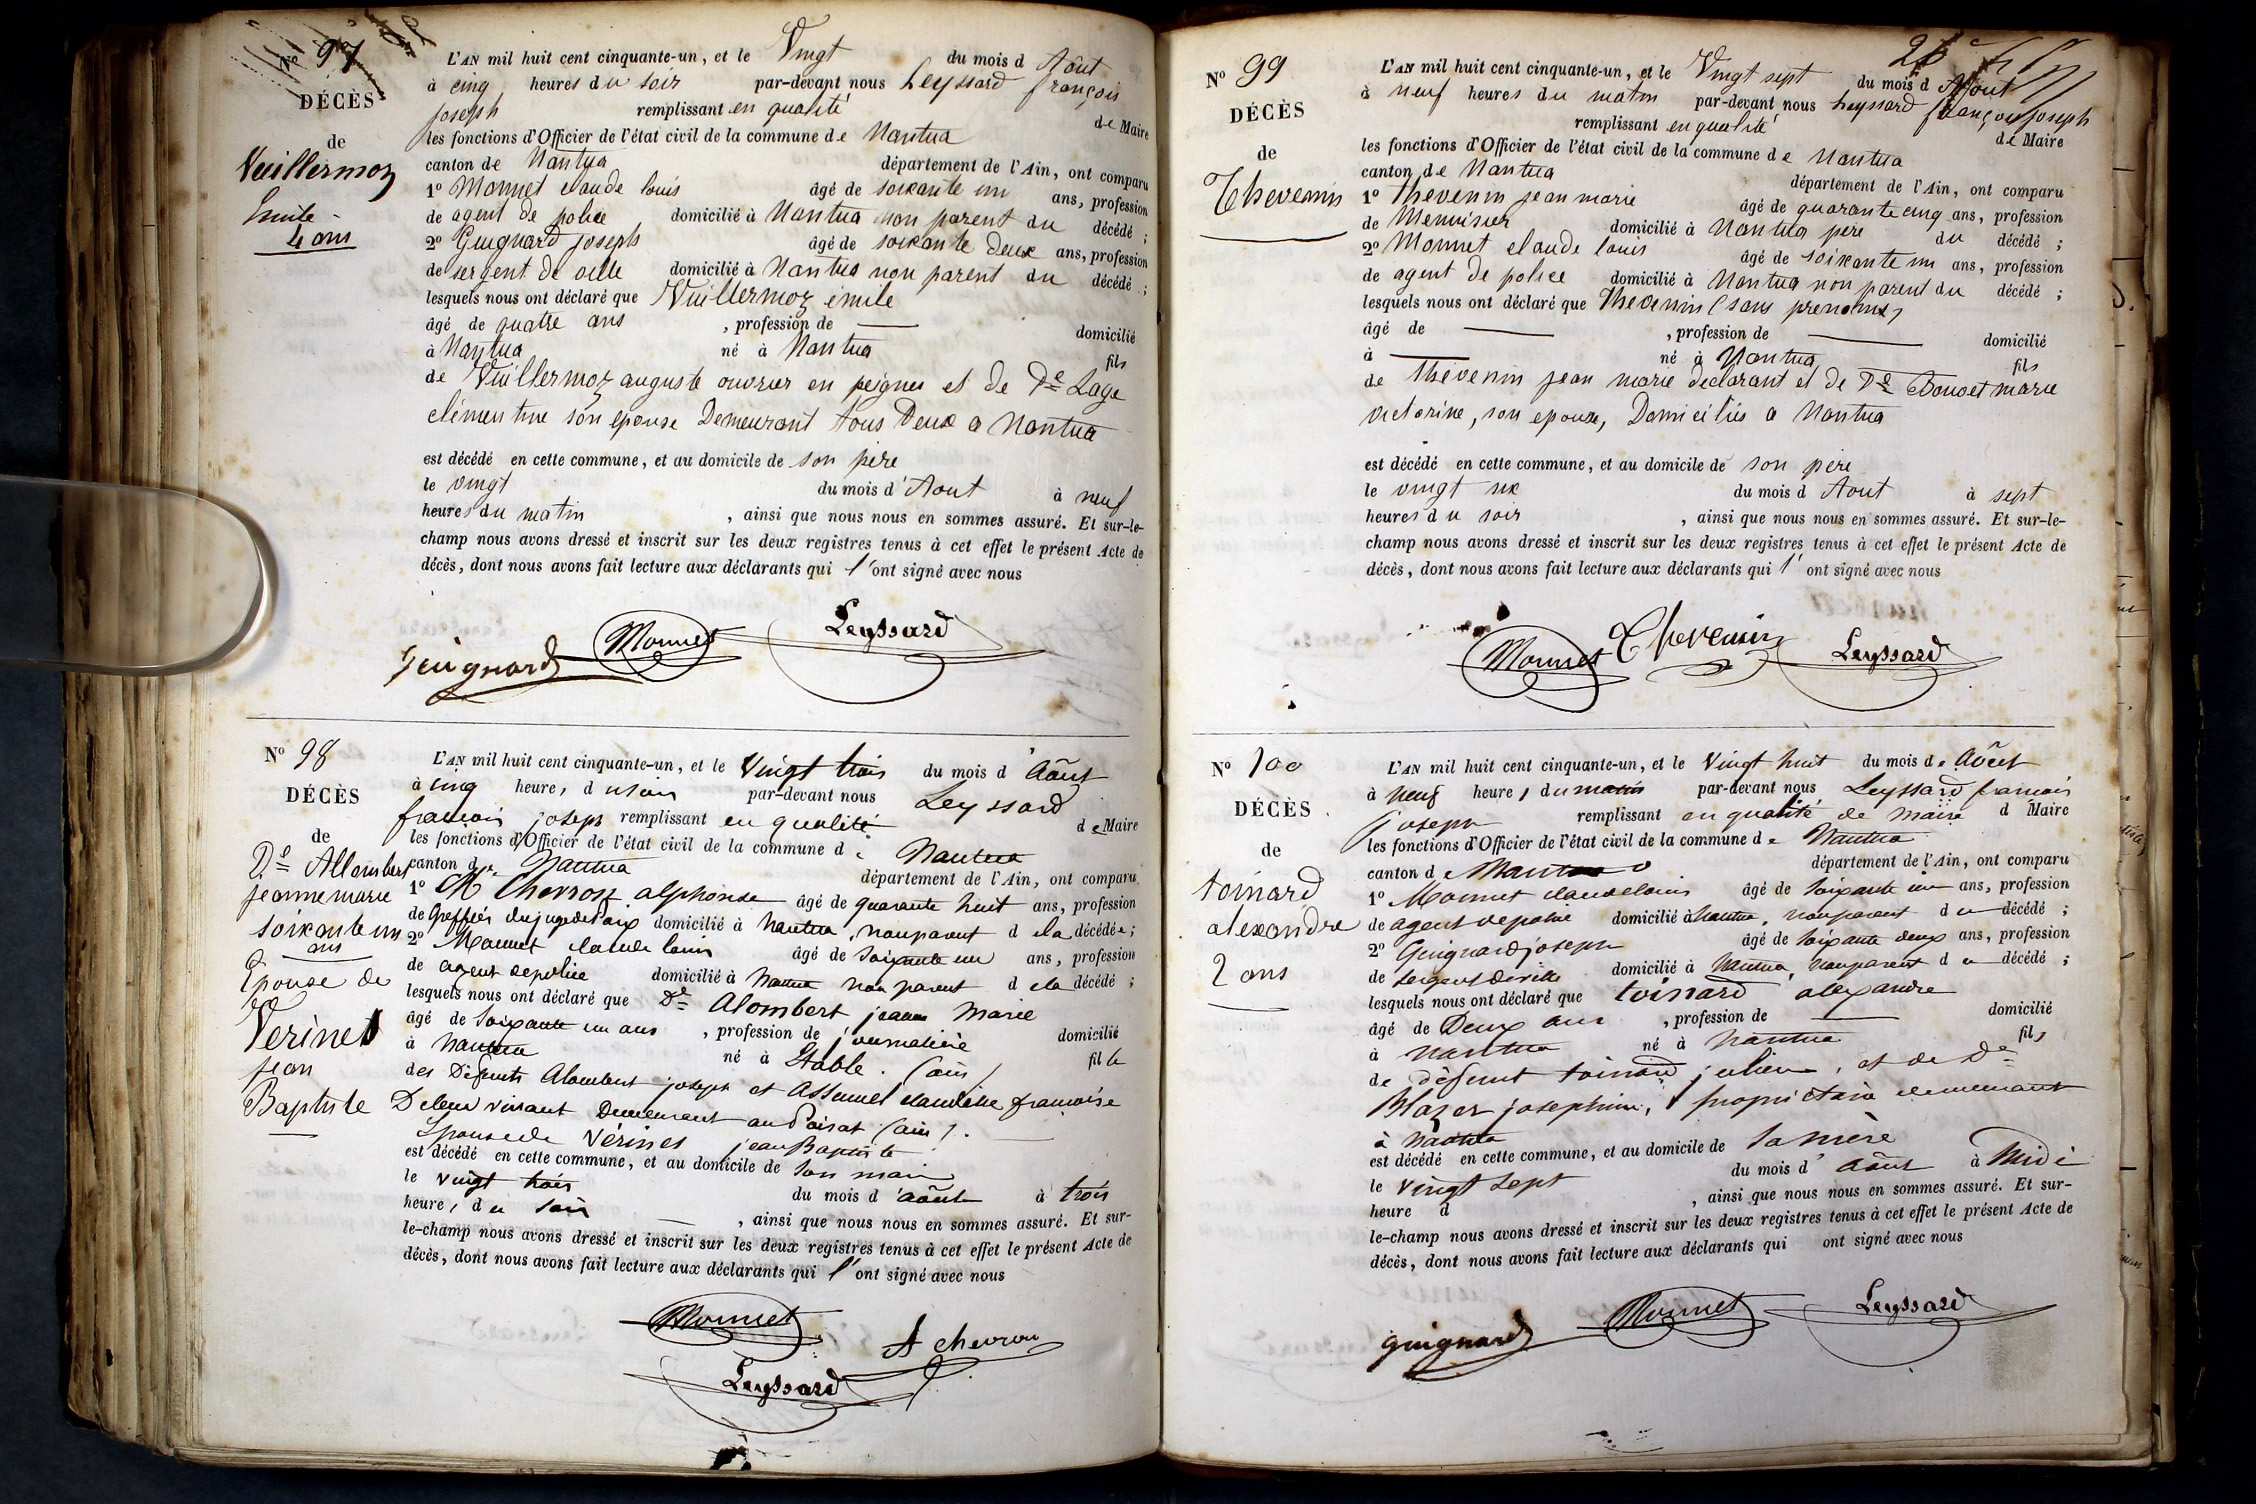 N° 97
DÉCÈS
de
Vuillermoz
Emile
4 ans
L'AN mil huit cent cinquante-un, et le Vingt du mois d'Aout
à cinq heures du soir par-devant nous Leyssard françois
joseph remplissant en qualité de Maire
les fonctions d'Officier de l'état civil de la commune de Nantua
canton de Nantua département de l'Ain, ont comparu
1° Monnet claude louis âgé de soixante un ans, profession
de agent de police domicilié à Nantua non parent du décédé ;
2° Guignard joseph âgé de soixante deux ans, profession
de sergent de ville domicilié à Nantua non parent du décédé ;
lesquels nous ont déclaré que Vuillermoz émile
âgé de quatre ans , profession de — domicilié
à Nantua né à Nantua fils
de Vuillermoz auguste ouvrier en peignes et de De Lage
clémentine son epouse Demeurant tous Deux a Nantua
est décédé en cette commune, et au domicile de son père
le vingt du mois d'Aout à neuf
heures du matin , ainsi que nous nous en sommes assuré. Et sur-le-
champ nous avons dressé et inscrit sur les deux registres tenus à cet effet le présent Acte de
décès, dont nous avons fait lecture aux déclarants qui l'ont signé avec nous
Guignard Monnet Leyssard
N° 98
DÉCÈS
de
De Allombert
jeanne marie
soixante un
ans
Epouse de
Verinet
jean
Baptiste
L'AN mil huit cent cinquante-un, et le Vingt trois du mois d'Août
à cinq heures du soir par-devant nous Leyssard
françois joseph remplissant en qualité de Maire
les fonctions d'Officier de l'état civil de la commune de Nantua
canton de Nantua département de l'Ain, ont comparu
1° M Chevron alphonse âgé de quarante huit ans, profession
de Greffier du juge de Paix domicilié à Nantua, non parent de la décédée;
2° Monnet claude louis âgé de soixante un ans, profession
de agent de police domicilié à Nantua non parent de la décédé ;
lesquels nous ont déclaré que De Alombert jeanne Marie
âgé de soixante un ans , profession de journalière domicilié
à Nantua né à Stable (ain) fille
des Défunts Alombert joseph et Assumel claudine françoise
De leur vivant Demeurant au Poisat (ain).
Epouse de Vérinet jean Baptiste
est décédé en cette commune, et au domicile de son mari
le vingt trois du mois d'août à trois
heures du soir — , ainsi que nous nous en sommes assuré. Et sur-
le-champ nous avons dressé et inscrit sur les deux registres tenus à cet effet le présent Acte de
décès, dont nous avons fait lecture aux déclarants qui l'ont signé avec nous
Monnet A chevron
Leyssard
N° 99
DÉCÈS
de
Thevenin
L'AN mil huit cent cinquante-un, et le Vingt sept du mois d'Aout
à neuf heures du matin par-devant nous Leyssard françois joseph
remplissant en qualité de Maire
les fonctions d'Officier de l'état civil de la commune de Nantua
canton de Nantua département de l'Ain, ont comparu
1° thevenin jean marie âgé de quarante cinq ans, profession
de Menuisier domicilié à Nantua père du décédé ;
2° Monnet claude louis âgé de soixante un ans, profession
de agent de police domicilié à Nantua non parent du décédé ;
lesquels nous ont déclaré que thevenin (sans prenoms)
âgé de — , profession de — domicilié
à — né à Nantua fils
de thévenin jean marie declarant et de De Bouvet marie
victorine, son epouse, Domiciliés a Nantua
est décédé en cette commune, et au domicile de son père
le vingt six du mois d Aout à sept
heures du soir , ainsi que nous nous en sommes assuré. Et sur-le-
champ nous avons dressé et inscrit sur les deux registres tenus à cet effet le présent Acte de
décès, dont nous avons fait lecture aux déclarants qui l'ont signé avec nous
Monnet Thevenin Leyssard
N° 100
DÉCÈS
de
toinard
alexandre
2 ans
L'AN mil huit cent cinquante-un, et le Vingt huit du mois de Août
à neuf heures du matin par-devant nous Leyssard francois
joseph remplissant en qualité de Maire d Maire
les fonctions d'Officier de l'état civil de la commune de Nantua
canton de Nantua département de l'Ain, ont comparu
1° Monnet claude louis âgé de soixante un ans, profession
de agent de police domicilié à Nantua, non parent du décédé ;
2° Guignard joseph âgé de soixante deux ans, profession
de sergent de ville domicilié à Nantua, non parent du décédé ;
lesquels nous ont déclaré que toinard alexandre
âgé de Deux ans , profession de — domicilié
à Nantua né à Nantua fils
de défunt toinard julien, et de De
Blazer josephine, propriétaire demeurant
à Nantua
est décédé en cette commune, et au domicile de sa mère
le vingt sept du mois d'août à Midi
heure d , ainsi que nous nous en sommes assuré. Et sur-
le-champ nous avons dressé et inscrit sur les deux registres tenus à cet effet le présent Acte de
décès, dont nous avons fait lecture aux déclarants qui ont signé avec nous
guignard Monnet Leyssard